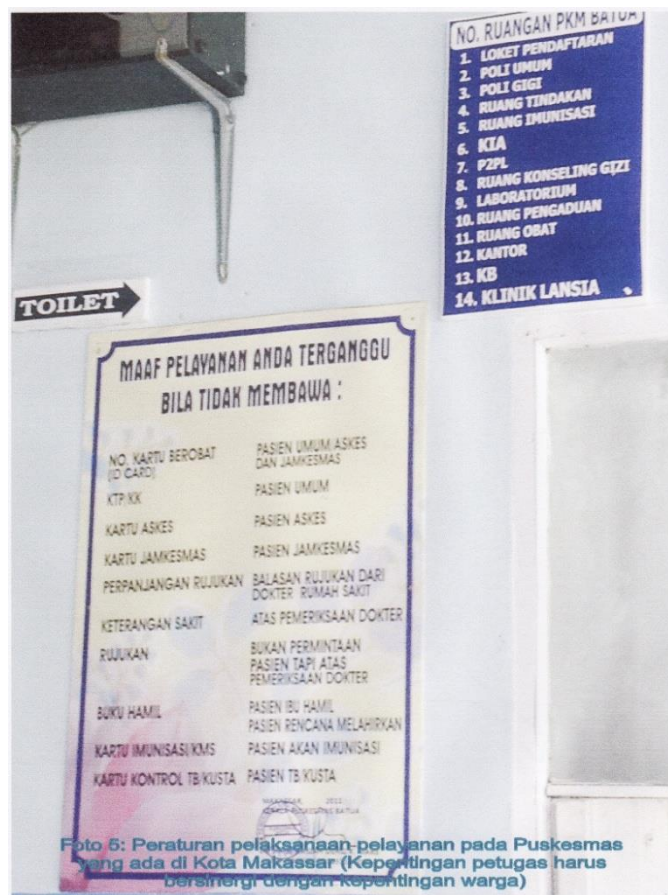 NO. RUANGAN PKM BATUA
1. LOKET PENDAFTARAN
2. POLI UMUM
3. POLI GIGI
4. RUANG TINDAKAN
5. RUANG IMUNISASI
6. KIA
7. P2PL
8. RUANG KONSELING GIZI
9. LABORATORIUM
10. RUANG PENGADUAN
11. RUANG OBAT
12. KANTOR
13. KB
14. KLINIK LANSIA
TOILET
MAAF PELAYANAN ANDA TERGANGGU
BILA TIDAK MEMBAWA :
NO. KARTU BEROBAT PASIEN UMUM/ASKES
(ID CARD) DAN JAMKESMAS
KTP/KK PASIEN UMUM
KARTU ASKES PASIEN ASKES
KARTU JAMKESMAS PASIEN JAMKESMAS
PERPANJANGAN RUJUKAN BALASAN RUJUKAN DARI
DOKTER RUMAH SAKIT
KETERANGAN SAKIT ATAS PEMERIKSAAN DOKTER
RUJUKAN BUKAN PERMINTAAN
PASIEN TAPI ATAS
PEMERIKSAAN DOKTER
BUKU HAMIL PASIEN IBU HAMIL
PASIEN RENCANA MELAHIRKAN
KARTU IMUNISASI/KMS PASIEN AKAN IMUNISASI
KARTU KONTROL TB/KUSTA PASIEN TB/KUSTA
MAKASSAR, 2011
PUSKESMAS BATUA
Foto 5: Peraturan pelaksanaan pelayanan pada Puskesmas
yang ada di Kota Makassar (Kepentingan petugas harus
bersinergi dengan kepentingan warga)